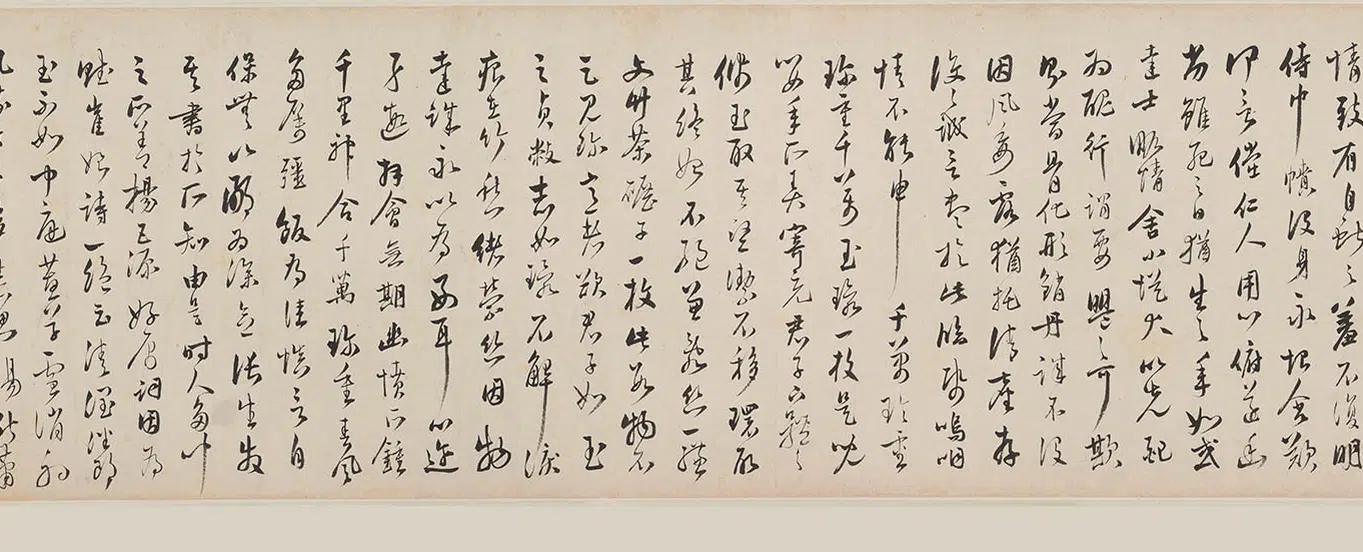 情致有自獻之羞不復明
侍巾幘沒身永恨含歎
何言儻仁人用心俯遂幽
劣雖死之日猶生之年如或
達士略情舍小從大以先配
為醜行謂要盟之可欺
則當骨化形銷丹誠不沒
因風委露猶托清塵存
沒之誠言盡於此臨紙嗚咽
情不能申千萬珍重
珍重千萬玉環一枚是兒
嬰年所弄寄充君子下體之
佩玉取其堅潔不移環取
其終始不絕兼亂絲一絇
文竹茶碾子一枚此數物不
足見珍意者欲君子如玉
之貞敝志如環不解淚
痕在竹愁緒縈絲因物
達誠永以為好耳心邇
身遐拜會無期幽憤所鍾
千里神合千萬珍重春風
多厲強飯為佳慎言自
保無以鄙為深念張生發
其書於所知由是時人多聞
之所善楊巨源好屬詞因為
賦崔娘詩一絕云清潤潘郎
玉不如中庭蕙草雪消初